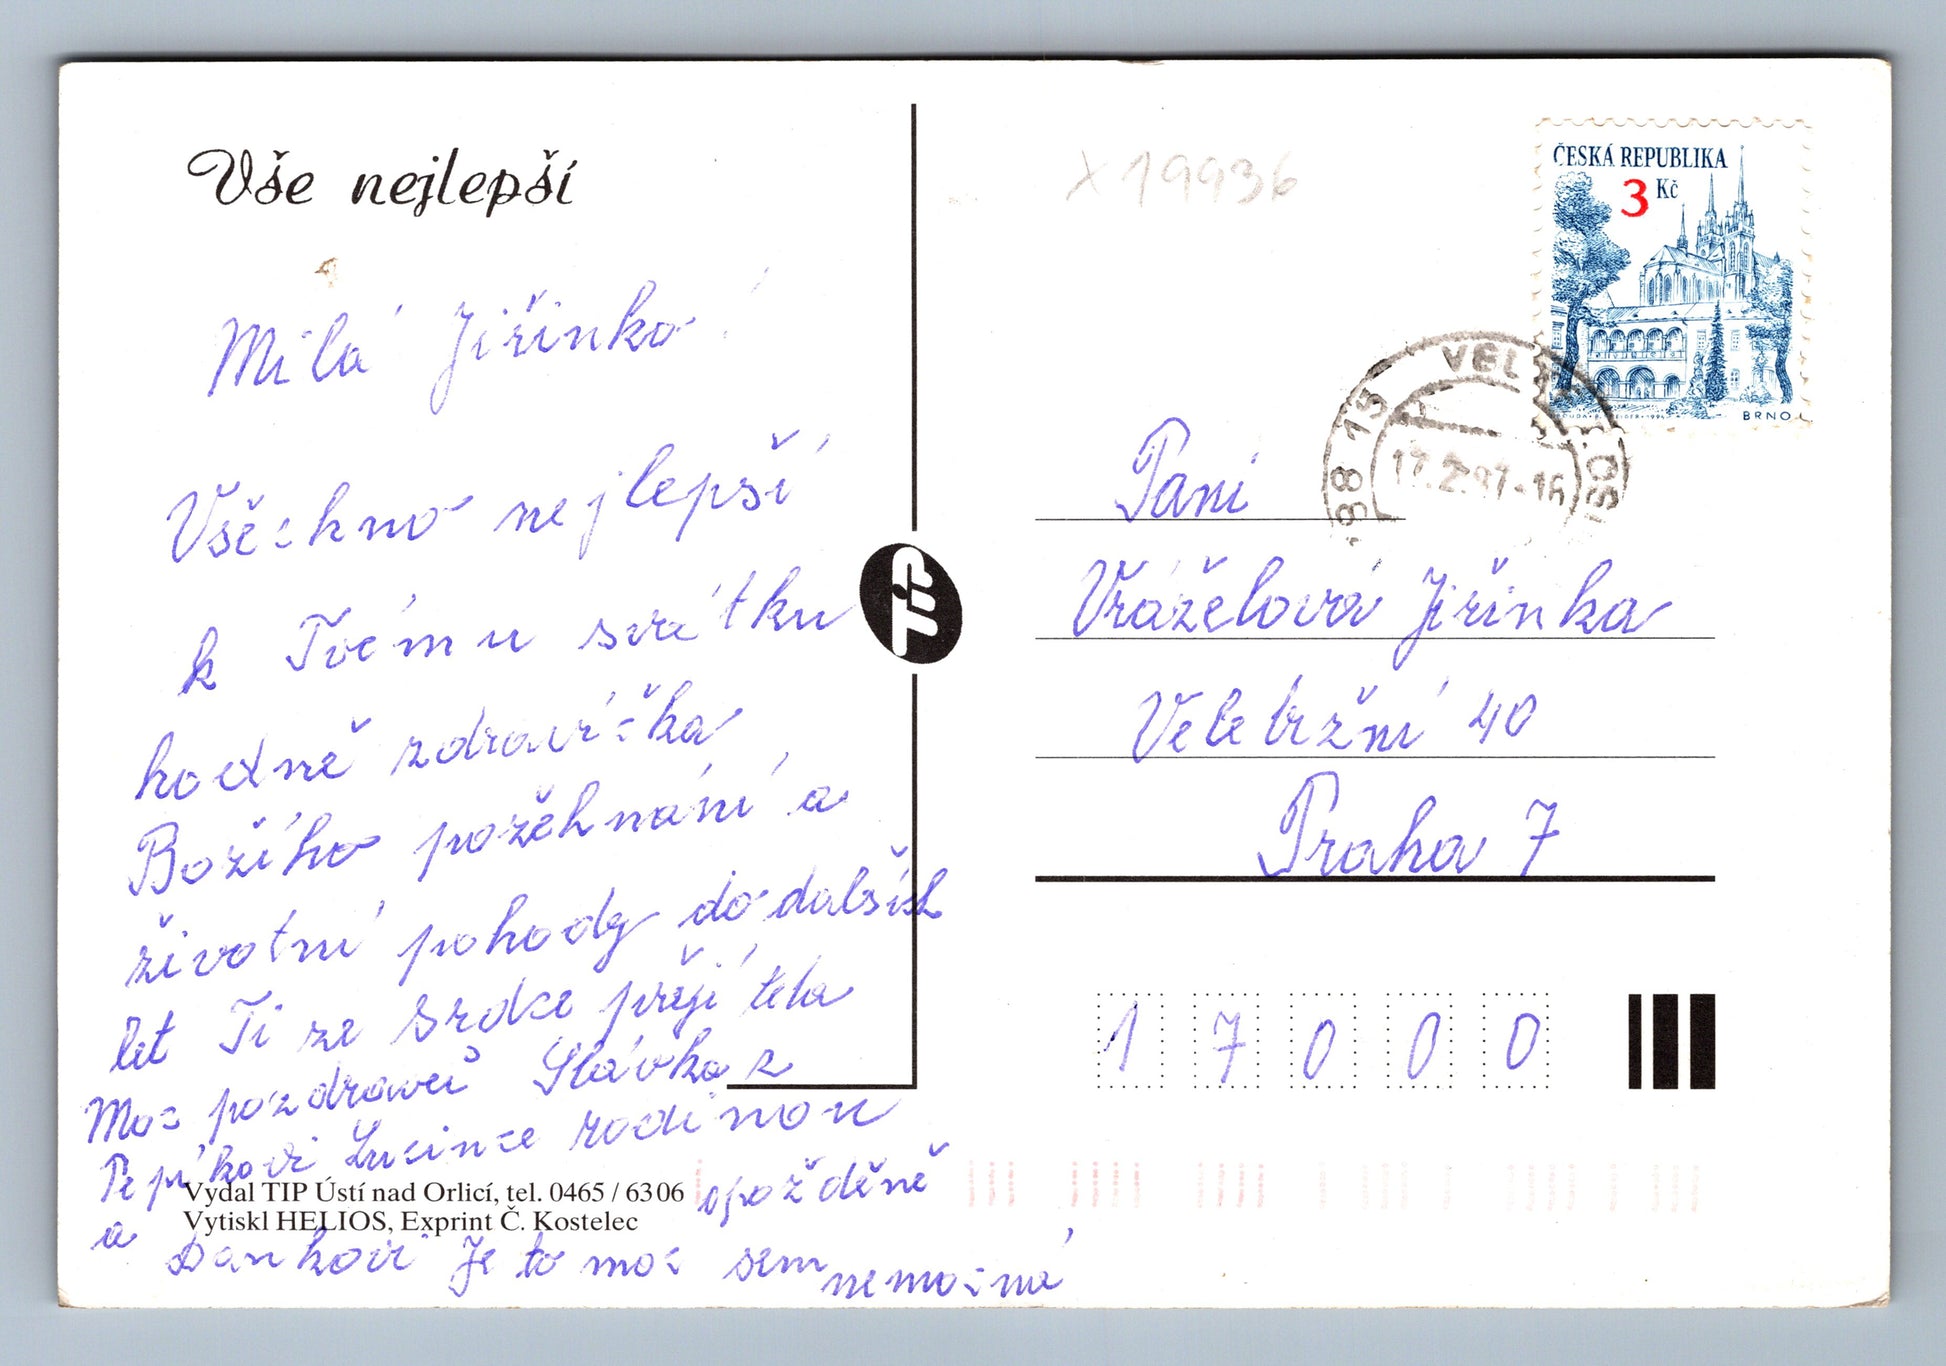 Vše nejlepší
Milá Jiřinko!
Všechno nejlepší
k Tvému svátku
hodně zdravíčka
Božího požehnání a
životní pohody do dalších
let Ti ze srdce přejí teta
Slávka z
Moc pozdravuj
rodinou
Pepíkovi Lucince
opožděně
a Dankovi Je to moc sem nemocná
Vydal TIP Ústí nad Orlicí, tel. 0465 / 6306
Vytiskl HELIOS, Exprint Č. Kostelec
TIP
X 19936
ČESKÁ REPUBLIKA
3 Kč
BRNO
398 15
17.2.97-16
Paní
Vráželová Jiřinka
Veletržní 40
Praha 7
17000